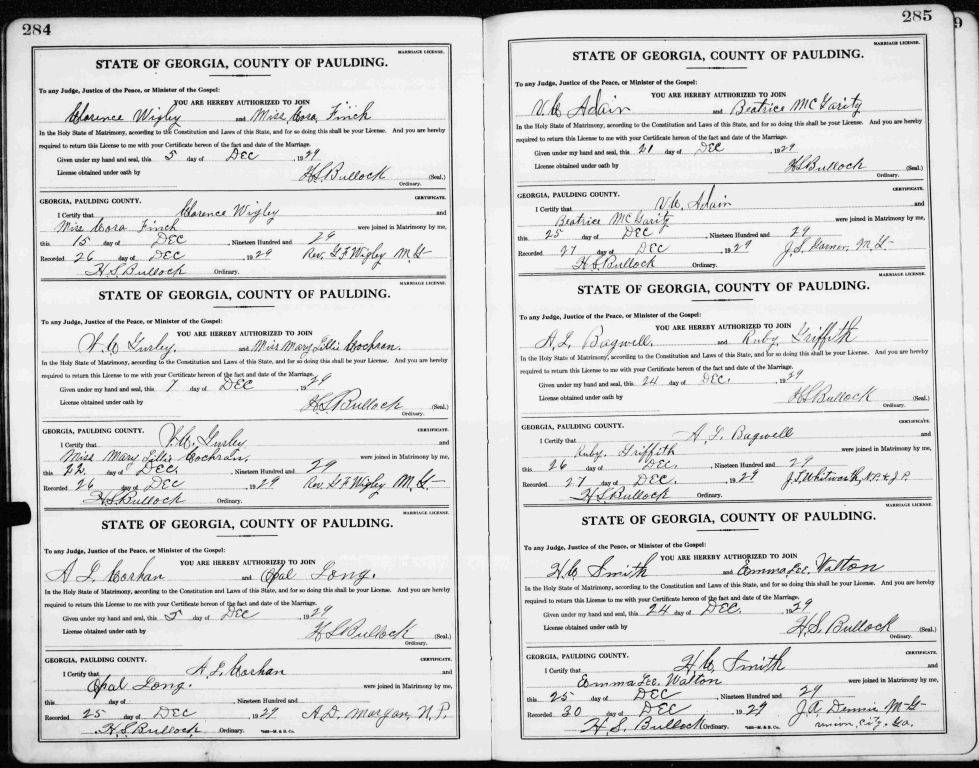 284
MARRIAGE LICENSE.
STATE OF GEORGIA, COUNTY OF PAULDING.
To any Judge, Justice of the Peace, or Minister of the Gospel:
YOU ARE HEREBY AUTHORIZED TO JOIN
Clorence Wigley and Miss Cora Finch
In the Holy State of Matrimony, according to the Constitution and Laws of this State, and for so doing this shall be your License. And you are hereby
required to return this License to me with your Certificate hereon of the fact and date of the Marriage.
Given under my hand and seal, this 5 day of DEC , 1929
License obtained under oath by H.S. Bullock (Seal.)
Ordinary.
GEORGIA, PAULDING COUNTY. CERTIFICATE.
I Certify that Clorence Wigley and
Miss Cora Finch were joined in Matrimony by me,
this 15 day of DEC , Nineteen Hundred and 29
Recorded 26 day of DEC , 1929 Rev. G F Wigley M.G-
H.S. Bullock Ordinary.
MARRIAGE LICENSE.
STATE OF GEORGIA, COUNTY OF PAULDING.
To any Judge, Justice of the Peace, or Minister of the Gospel:
YOU ARE HEREBY AUTHORIZED TO JOIN
V. C Gurley. and Miss Mary Lillie Cochran.
In the Holy State of Matrimony, according to the Constitution and Laws of this State, and for so doing this shall be your License. And you are hereby
required to return this License to me with your Certificate hereon of the fact and date of the Marriage.
Given under my hand and seal, this 7 day of DEC , 1929
License obtained under oath by H.S. Bullock (Seal.)
Ordinary.
GEORGIA, PAULDING COUNTY. CERTIFICATE.
I Certify that V. C. Gurley and
Miss Mary Lillie Cochran, were joined in Matrimony by me,
this 22. day of DEC. , Nineteen Hundred and 29
Recorded 26 day of DEC , 1929 Rev. G F Wigley M.G-
H.S. Bullock Ordinary.
MARRIAGE LICENSE.
STATE OF GEORGIA, COUNTY OF PAULDING.
To any Judge, Justice of the Peace, or Minister of the Gospel:
YOU ARE HEREBY AUTHORIZED TO JOIN
A L Corhan and Opal Long.
In the Holy State of Matrimony, according to the Constitution and Laws of this State, and for so doing this shall be your License. And you are hereby
required to return this License to me with your Certificate hereon of the fact and date of the Marriage.
Given under my hand and seal, this 5 day of DEC , 1929
License obtained under oath by H S Bullock (Seal.)
Ordinary.
GEORGIA, PAULDING COUNTY. CERTIFICATE.
I Certify that A. L. Corhan and
Opal Long. were joined in Matrimony by me,
this day of , Nineteen Hundred and
Recorded 25 day of DEC , 1929 A. D. Morgan, N. P.
H.S. Bullock, Ordinary.
285
MARRIAGE LICENSE.
STATE OF GEORGIA, COUNTY OF PAULDING.
To any Judge, Justice of the Peace, or Minister of the Gospel:
YOU ARE HEREBY AUTHORIZED TO JOIN
V. C Adair and Beatrice McGarity
In the Holy State of Matrimony, according to the Constitution and Laws of this State, and for so doing this shall be your License. And you are hereby
required to return this License to me with your Certificate hereon of the fact and date of the Marriage.
Given under my hand and seal, this 21 day of DEC , 1929
License obtained under oath by H.S. Bullock (Seal.)
Ordinary.
GEORGIA, PAULDING COUNTY. CERTIFICATE.
I Certify that V. C. Adair and
Beatrice McGarity were joined in Matrimony by me,
this 25 day of DEC , Nineteen Hundred and 29
Recorded 27 day of DEC , 1929 M. G-
H.S. Bullock Ordinary.
MARRIAGE LICENSE.
STATE OF GEORGIA, COUNTY OF PAULDING.
To any Judge, Justice of the Peace, or Minister of the Gospel:
YOU ARE HEREBY AUTHORIZED TO JOIN
A. L. Bagwell. and Ruby Griffith
In the Holy State of Matrimony, according to the Constitution and Laws of this State, and for so doing this shall be your License. And you are hereby
required to return this License to me with your Certificate hereon of the fact and date of the Marriage.
Given under my hand and seal, this 24 day of DEC. , 1929
License obtained under oath by H S Bullock (Seal.)
Ordinary.
GEORGIA, PAULDING COUNTY. CERTIFICATE.
I Certify that A. L Bagwell and
Ruby. Griffith were joined in Matrimony by me,
this 26 day of DEC. , Nineteen Hundred and 29
Recorded 27 day of DEC. , 1929 J. T. Whitworth, N.P. & J P.
H.S. Bullock Ordinary.
MARRIAGE LICENSE.
STATE OF GEORGIA, COUNTY OF PAULDING.
To any Judge, Justice of the Peace, or Minister of the Gospel:
YOU ARE HEREBY AUTHORIZED TO JOIN
H. C Smith and Emma Lee. Walton
In the Holy State of Matrimony, according to the Constitution and Laws of this State, and for so doing this shall be your License. And you are hereby
required to return this License to me with your Certificate hereon of the fact and date of the Marriage.
Given under my hand and seal, this 24 day of DEC. , 1929
License obtained under oath by H. S. Bullock (Seal.)
Ordinary.
GEORGIA, PAULDING COUNTY. CERTIFICATE.
I Certify that H. C Smith and
Emma Lee. Walton were joined in Matrimony by me,
this 25 day of DEC , Nineteen Hundred and 29
Recorded 30 day of DEC , 1929 J. A. Dennis M-G-
H. S. Bullock Ordinary. City, Ga.